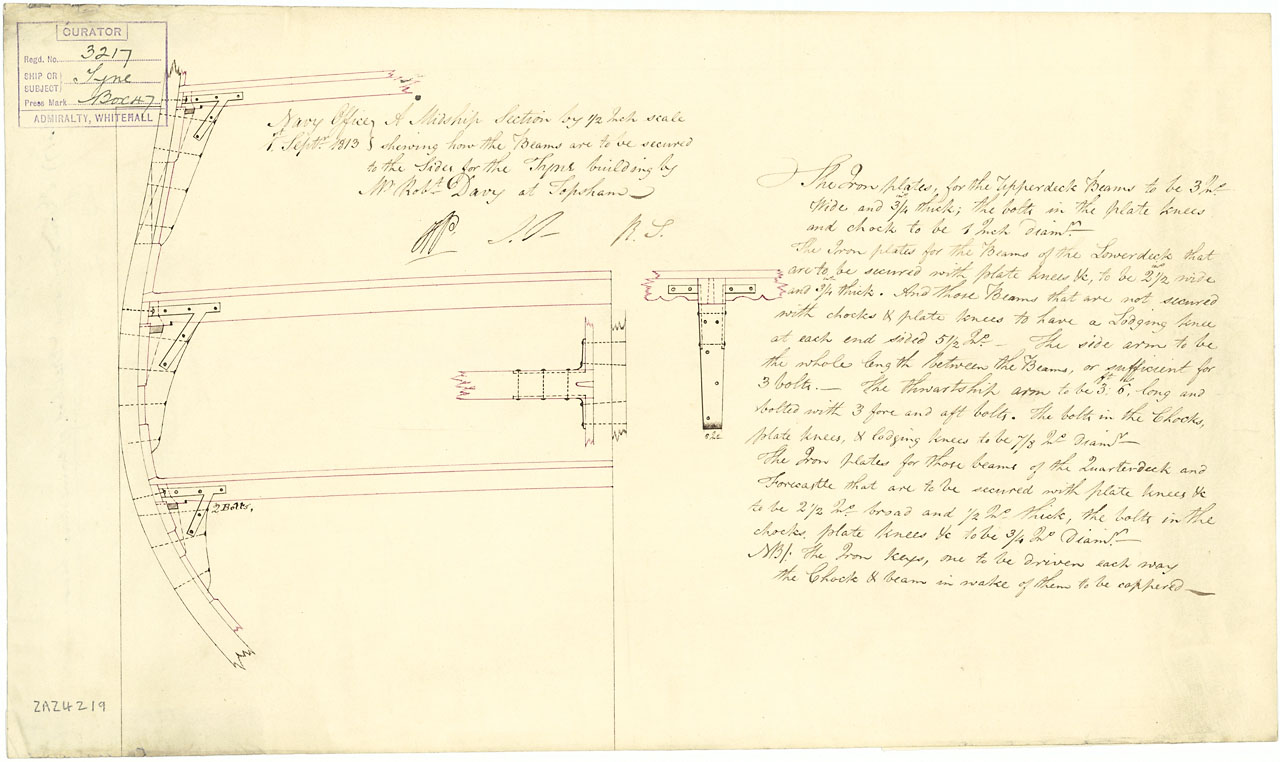 CURATOR
Regd. No. 3217
SHIP OR SUBJECT Tyne
Press Mark Box 47
ADMIRALTY, WHITEHALL
Navy Office } A Midship Section by 1/2 Inch scale
1st Septr. 1813 } shewing how the Beams are to be secured
to the Sides for the Tyne building by
Mr. Robt. Davy at Topsham
R. S.
The Iron plates, for the Upperdeck Beams to be 3 Ins.
wide and 3/4 thick; the bolts in the plate knees
and chock to be 1 Inch Diamr.
The Iron plates for the Beams of the Lowerdeck that
are to be secured with plate knees &c, to be 2 1/2 wide
and 3/4 thick. And those Beams that are not secured
with chocks & plate knees to have a Lodging knee
at each end sided 5 1/2 Ins. — The side arm to be
the whole length between the Beams, or sufficient for
3 bolts. — The thwartship arm to be 3ft: 6in, long and
bolted with 3 fore and aft bolts. The bolts in the Chocks,
plate knees, & lodging knees to be 7/8 Ins Diamr.
The Iron plates for those beams of the Quarterdeck and
Forecastle that are to be secured with plate knees &c
to be 2 1/2 Ins. broad and 1/2 Ins. thick, the bolts in the
chocks, plate knees &c to be 3/4 Ins Diamr.
NB/: the Iron keys, one to be driven each way
the Chock & beam in wake of them to be coppered
2 Bolts,
ZAZ4219